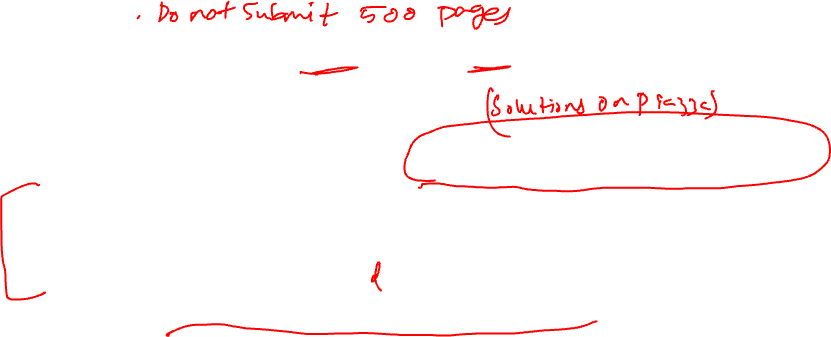 . Do not Submit 500 pages
(Solutions on Piazza)
d